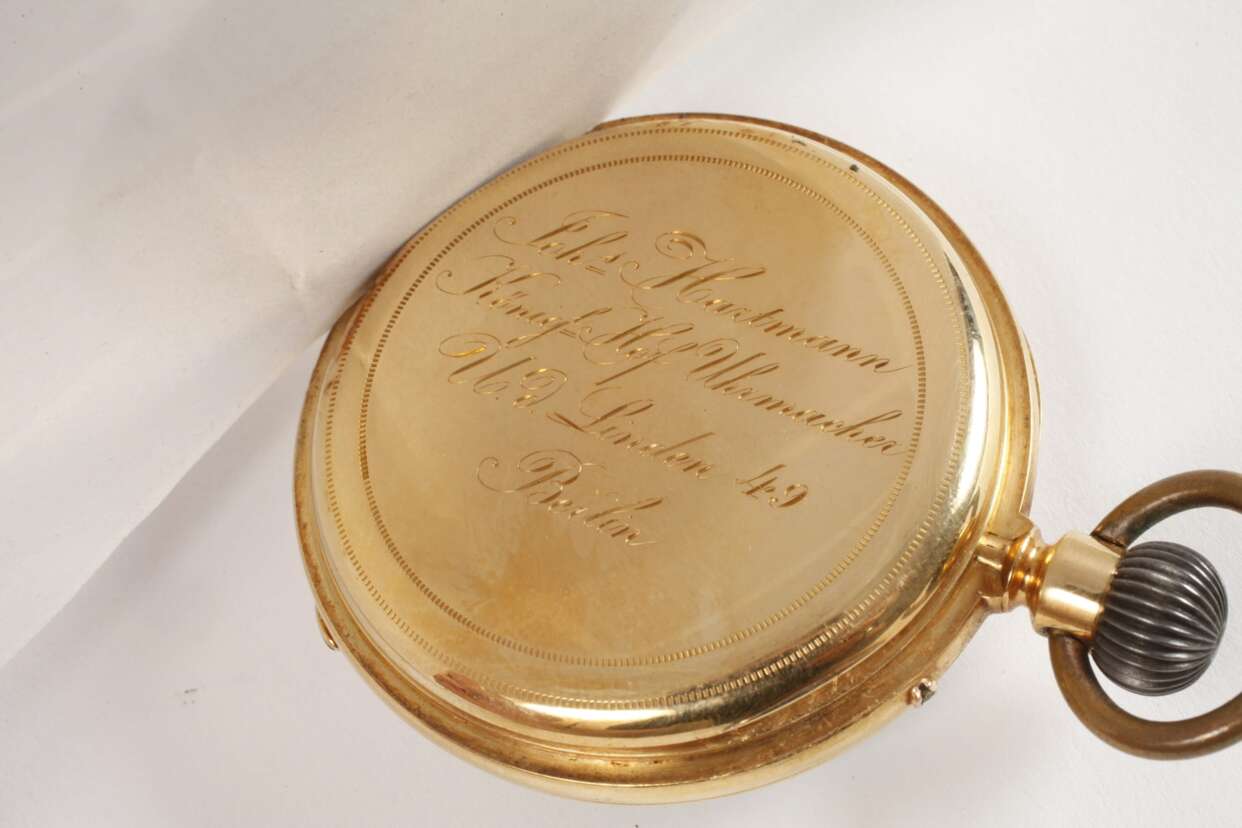 Johs Hartmann
Königl Hof Uhrmacher
U. d. Linden 49
Berlin